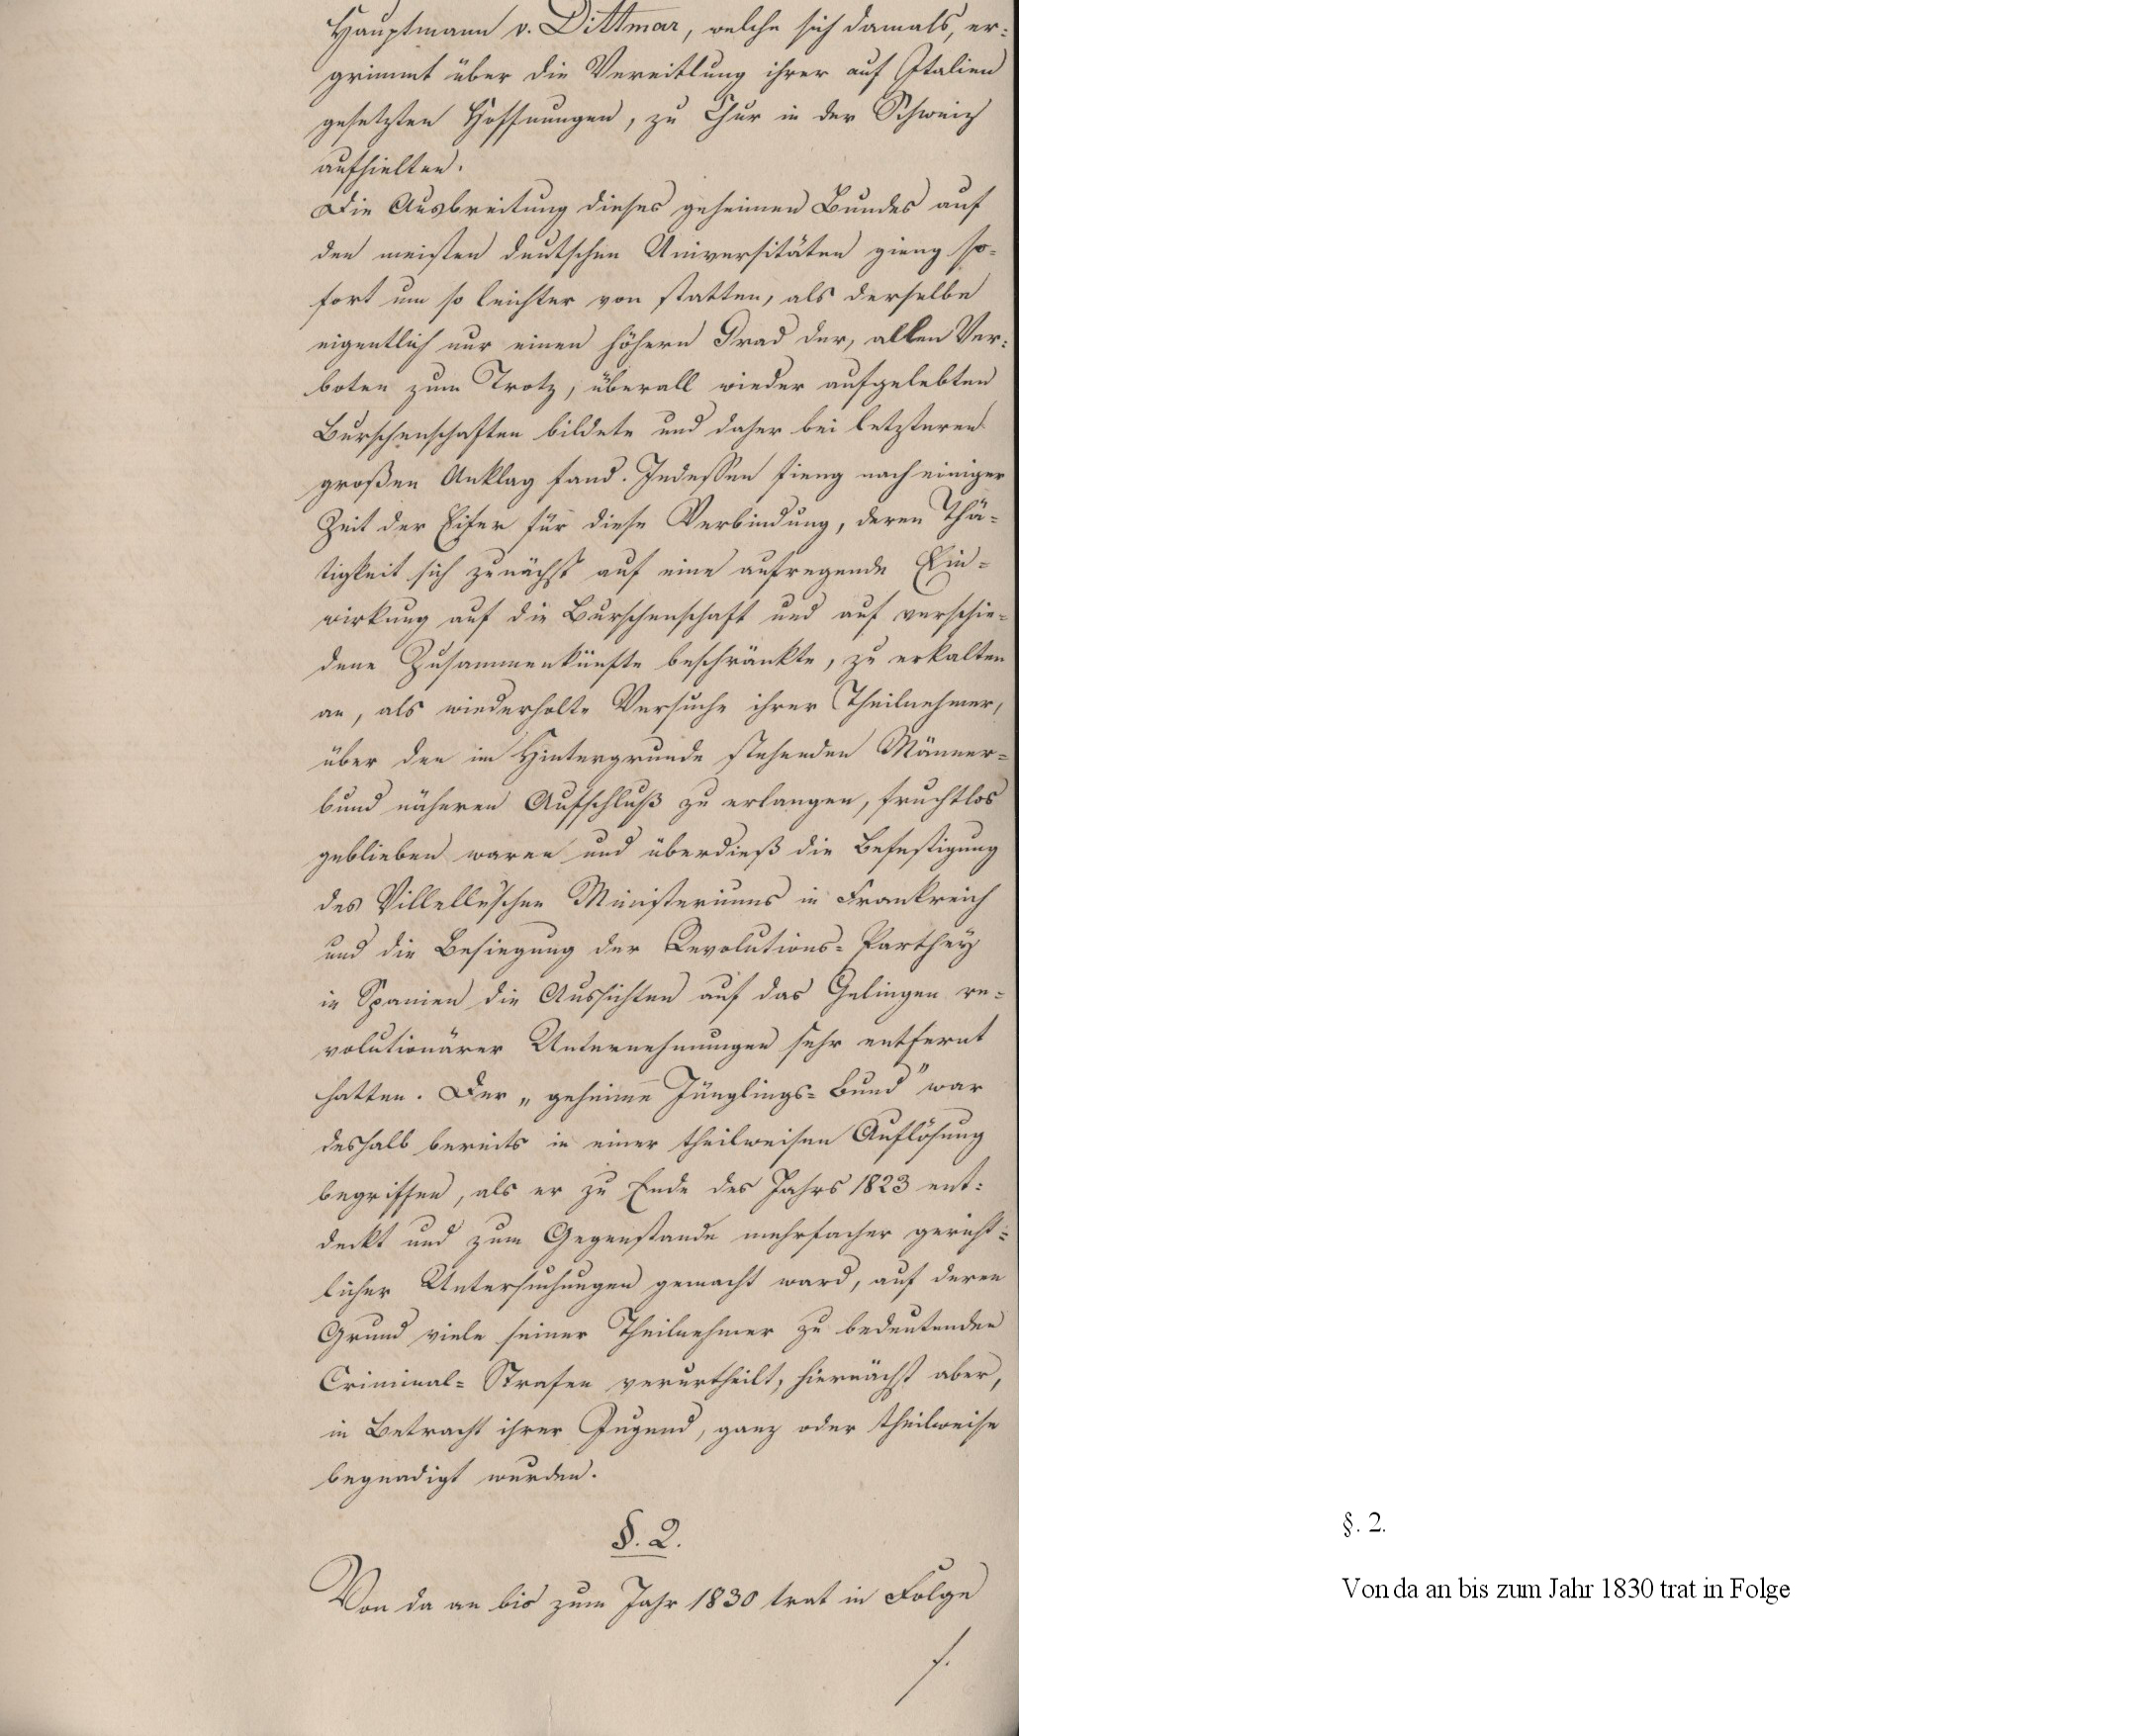 Hauptmann v. Dittmar, welche sich damals, er:
grimmt über die Vereitlung ihrer auf Italien
gesetzten Hoffnungen, zu Chur in der Schweiz
aufhielten.
Die Ausbreitung dieses geheimen Bundes auf
den meisten deutschen Universitäten gieng so-
fort um so leichter von statten, als derselbe
eigentlich nur einen höhern Grad der, allen Ver:
boten zum Trotz, überall wieder aufgelebten
Burschenschaften bildete und daher bei letzteren
großen Anklag fand. Indessen fieng nach einiger
Zeit der Eifer für diese Verbindung, deren Thä-
tigkeit sich zunächst auf eine aufregende Ein-
wirkung auf die Burschenschaft und auf verschie-
dene Zusammenkünfte beschränkte, zu erkalten
an, als wiederholte Versuche ihrer Theilnehmer,
über den im Hintergrunde stehenden Männer-
bund näheren Aufschluß zu erlangen, fruchtlos
geblieben waren und überdieß die Befestigung
des Villelle'schen Ministeriums in Frankreich
und die Besiegung der Revolutions-Parthey
in Spanien die Aussichten auf das Gelingen re-
volutionärer Unternehmungen sehr entfernt
hatten. Der „geheime Jünglings-Bund" war
deshalb bereits in einer theilweisen Auflösung
begriffen, als er zu Ende des Jahrs 1823 ent:
deckt und zum Gegenstande mehrfacher gericht-
licher Untersuchungen gemacht ward, auf deren
Grund viele seiner Theilnehmer zu bedeutenden
Criminal-Strafen verurtheilt, hiernächst aber,
in Betracht ihrer Jugend, ganz oder theilweise
begnadigt wurden.
§. 2.
Von da an bis zum Jahr 1830 trat in Folge
§. 2.
Von da an bis zum Jahr 1830 trat in Folge